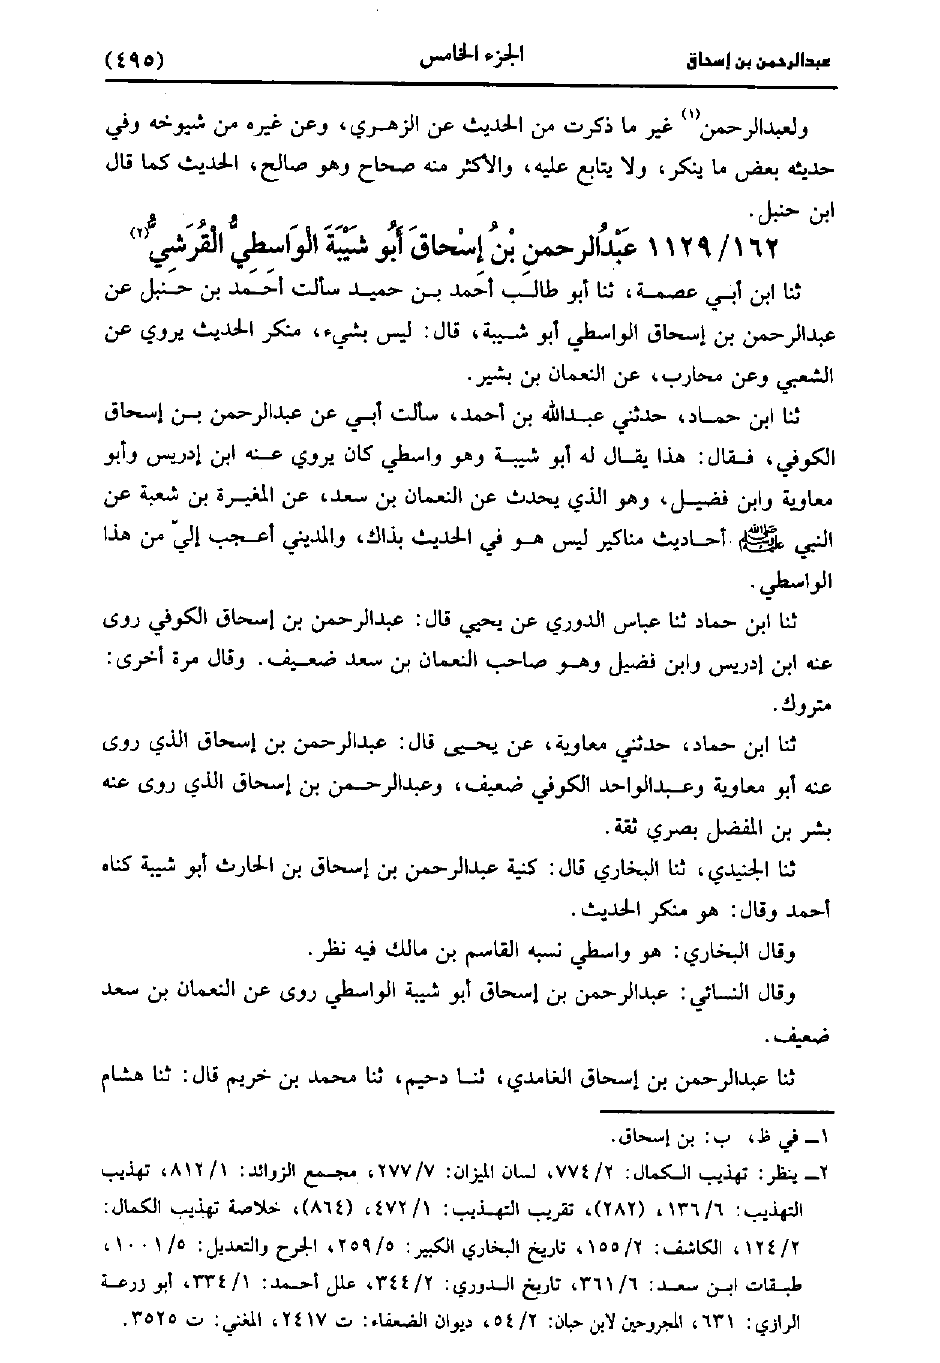 عبدالرحمن بن إسحاق الجزء الخامس (٤٩٥)
ولعبدالرحمن(١) غير ما ذكرت من الحديث عن الزهري، وعن غيره من شيوخه وفي
حديثه بعض ما ينكر، ولا يتابع عليه، والأكثر منه صحاح وهو صالح، الحديث كما قال
ابن حنبل.
١١٢٩/١٦٢ عَبْدُالرحمنِ بْنُ إِسْحاقَ أَبُو شَيْبَةَ الْوَاسِطِيُّ الْقُرَشِيُّ(٢)
ثنا ابن أبي عصمة، ثنا أبو طالب أحمد بن حميد سألت أحمد بن حنبل عن
عبدالرحمن بن إسحاق الواسطي أبو شيبة، قال: ليس بشيء، منكر الحديث يروي عن
الشعبي وعن محارب، عن النعمان بن بشير.
ثنا ابن حماد، حدثني عبدالله بن أحمد، سألت أبي عن عبدالرحمن بن إسحاق
الكوفي، فقال: هذا يقال له أبو شيبة وهو واسطي كان يروي عنه ابن إدريس وأبو
معاوية وابن فضيل، وهو الذي يحدث عن النعمان بن سعد، عن المغيرة بن شعبة عن
النبي ﷺ أحاديث مناكير ليس هو في الحديث بذاك، والمديني أعجب إليّ من هذا
الواسطي.
ثنا ابن حماد ثنا عباس الدوري عن يحيي قال: عبدالرحمن بن إسحاق الكوفي روى
عنه ابن إدريس وابن فضيل وهو صاحب النعمان بن سعد ضعيف. وقال مرة أخرى:
متروك.
ثنا ابن حماد، حدثني معاوية، عن يحيى قال: عبدالرحمن بن إسحاق الذي روى
عنه أبو معاوية وعبدالواحد الكوفي ضعيف، وعبدالرحمن بن إسحاق الذي روى عنه
بشر بن المفضل بصري ثقة.
ثنا الجنيدي، ثنا البخاري قال: كنية عبدالرحمن بن إسحاق بن الحارث أبو شيبة كناه
أحمد وقال: هو منكر الحديث.
وقال البخاري: هو واسطي نسبه القاسم بن مالك فيه نظر.
وقال النسائي: عبدالرحمن بن إسحاق أبو شيبة الواسطي روى عن النعمان بن سعد
ضعيف.
ثنا عبدالرحمن بن إسحاق الغامدي، ثنا دحيم، ثنا محمد بن خريم قال: ثنا هشام
١ــ في ظ، ب: بن إسحاق.
٢ــ ينظر: تهذيب الكمال: ٧٧٤/٢، لسان الميزان: ٢٧٧/٧، مجمع الزوائد: ٨١٢/١، تهذيب
التهذيب: ١٣٦/٦، (٢٨٢)، تقريب التهذيب: ٤٧٢/١، (٨٦٤)، خلاصة تهذيب الكمال:
١٢٤/٢، الكاشف: ١٥٥/٢، تاريخ البخاري الكبير: ٢٥٩/٥، الجرح والتعديل: ١٠٠١/٥،
طبقات ابن سعد: ٣٦١/٦، تاريخ الدوري: ٣٤٤/٢، علل أحمد: ٣٣٤/١، أبو زرعة
الرازي: ٦٣١، المجروحين لابن حبان: ٥٤/٢، ديوان الضعفاء: ت ٢٤١٧، المغني: ت ٣٥٢٥.